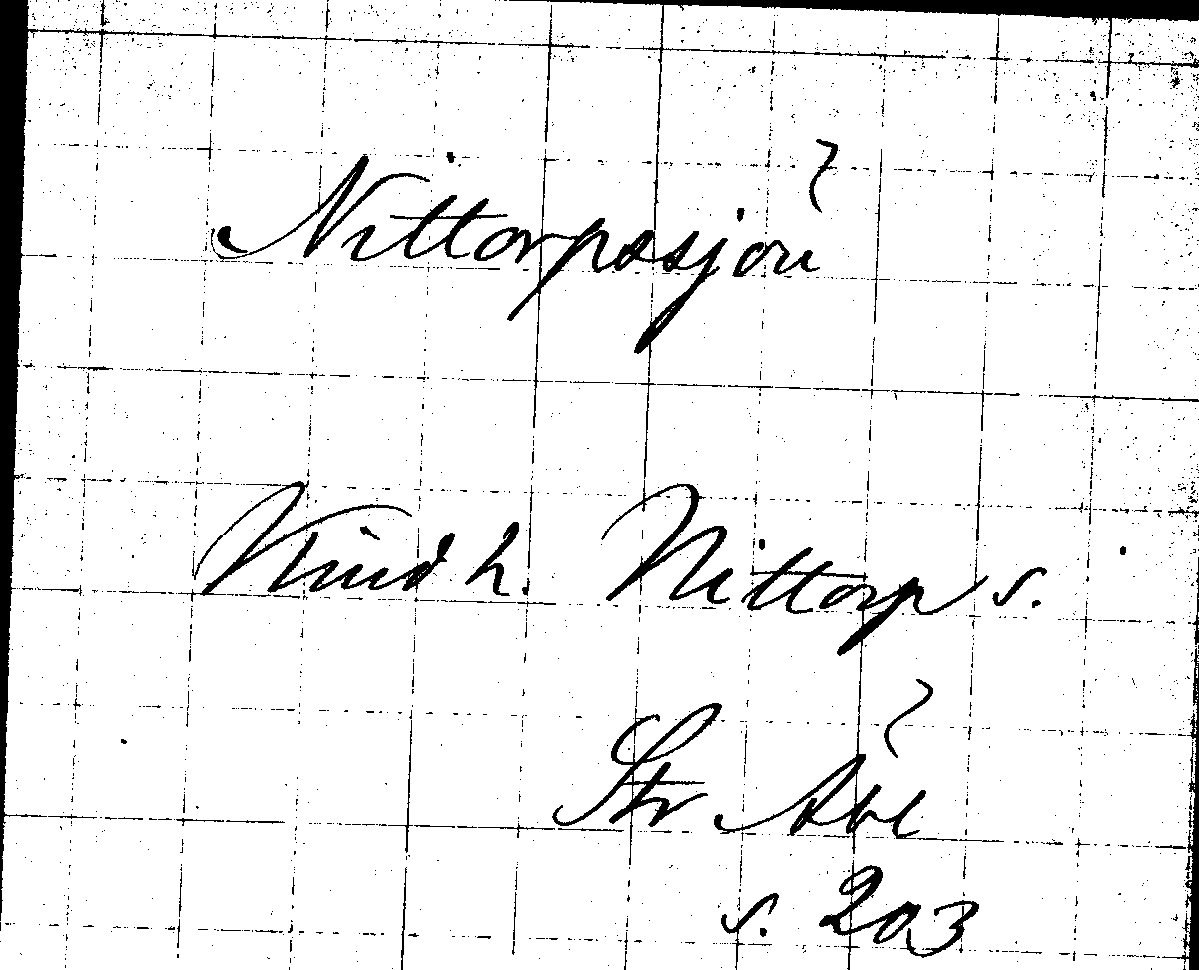 Nittorpasjön
Kind h. Nittorp s.
Str
s. 203